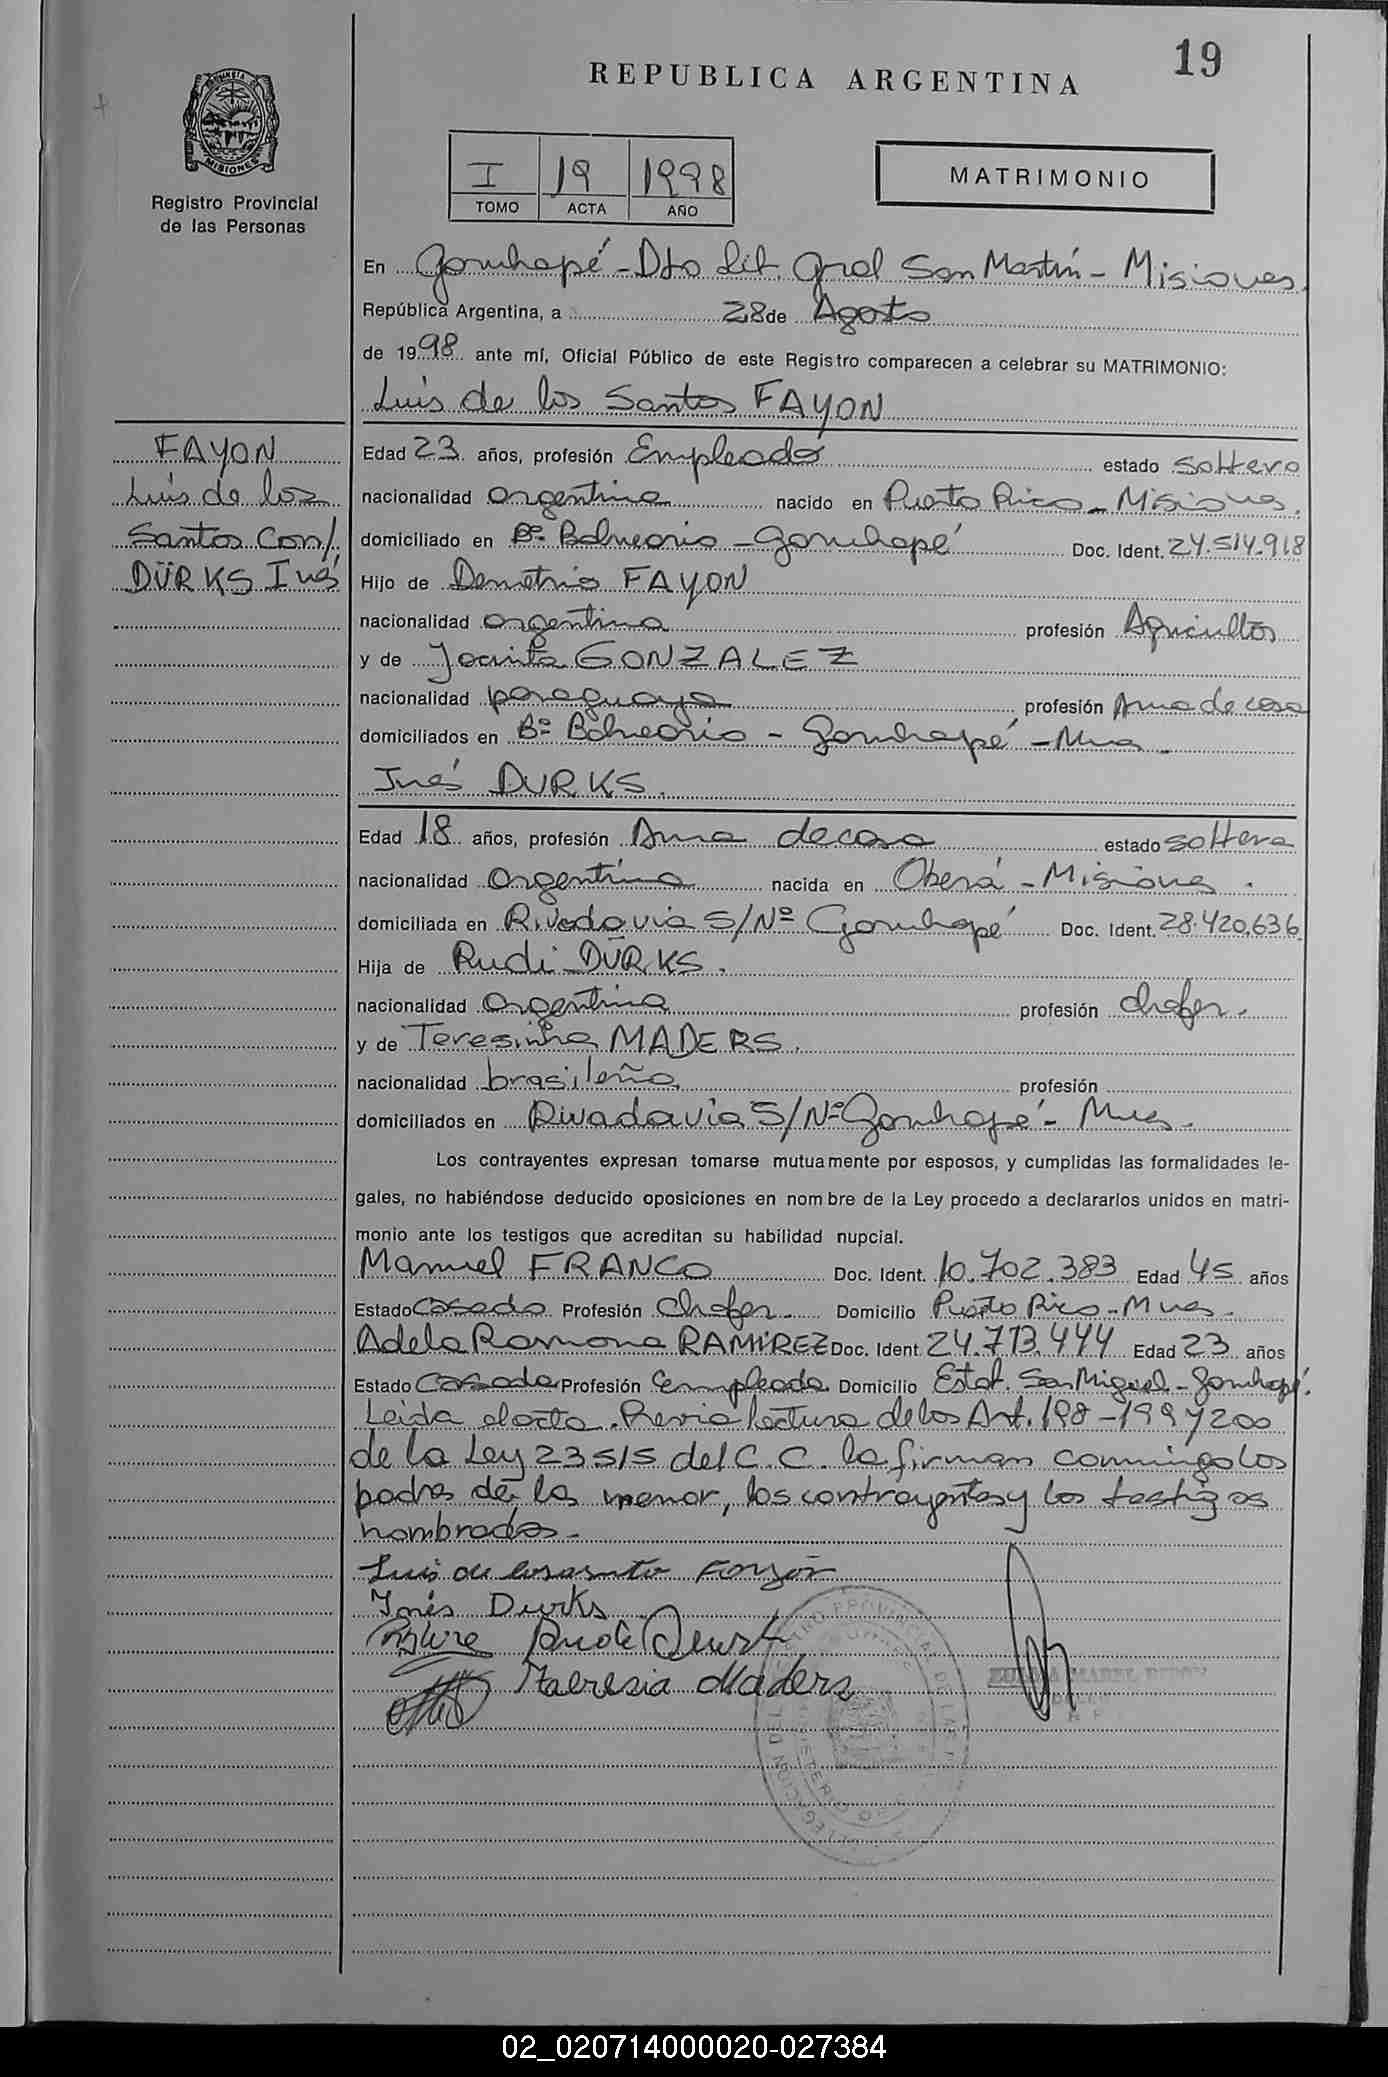 19
REPUBLICA ARGENTINA
MISIONES
Registro Provincial
de las Personas
I 19 1998
TOMO ACTA AÑO
MATRIMONIO
En Garuhapé - Dto Lib. Gral San Martín - Misiones.
República Argentina, a 28 de Agosto
de 1998 ante mí, Oficial Público de este Registro comparecen a celebrar su MATRIMONIO:
Luis de los Santos FAYON
FAYON
Luis de los
Santos Con/.
DÜRKS Inés
Edad 23 años, profesión Empleado estado soltero
nacionalidad argentina nacido en Puerto Rico - Misiones.
domiciliado en Bº Balneario - Garuhapé Doc. Ident. 24.514.918
Hijo de Demetrio FAYON
nacionalidad argentina profesión Agricultor
y de Jacinta GONZALEZ
nacionalidad paraguaya profesión Ama de casa
domiciliados en Bº Balneario - Garuhapé - Mnes.
Inés DURKS.
Edad 18 años, profesión Ama de casa estado soltera
nacionalidad argentina nacida en Oberá - Misiones.
domiciliada en Rivadavia S/Nº Garuhapé Doc. Ident. 28.420.636
Hija de Rudi DÜRKS.
nacionalidad argentina profesión chofer.
y de Teresinha MADERS.
nacionalidad brasileña profesión
domiciliados en Rivadavia S/Nº Garuhapé - Mnes.
Los contrayentes expresan tomarse mutuamente por esposos, y cumplidas las formalidades le-
gales, no habiéndose deducido oposiciones en nombre de la Ley procedo a declararlos unidos en matri-
monio ante los testigos que acreditan su habilidad nupcial.
Manuel FRANCO Doc. Ident. 10.702.383 Edad 45 años
Estado casado Profesión Chofer. Domicilio Puerto Rico - Mnes.
Adela Ramona RAMIREZ Doc. Ident. 24.713.444 Edad 23 años
Estado casada Profesión empleada. Domicilio Estaf. San Miguel - Garuhapé.
Leida el acta. Previa lectura de los Art. 198 - 199 y 200
de la Ley 23515 del C. C. la firman conmingo los
padres de la menor, los contrayentes y los testigos
nombrados.
Inés Durks
Maders
REGISTRO PROVINCIAL DE LAS
02_020714000020-027384